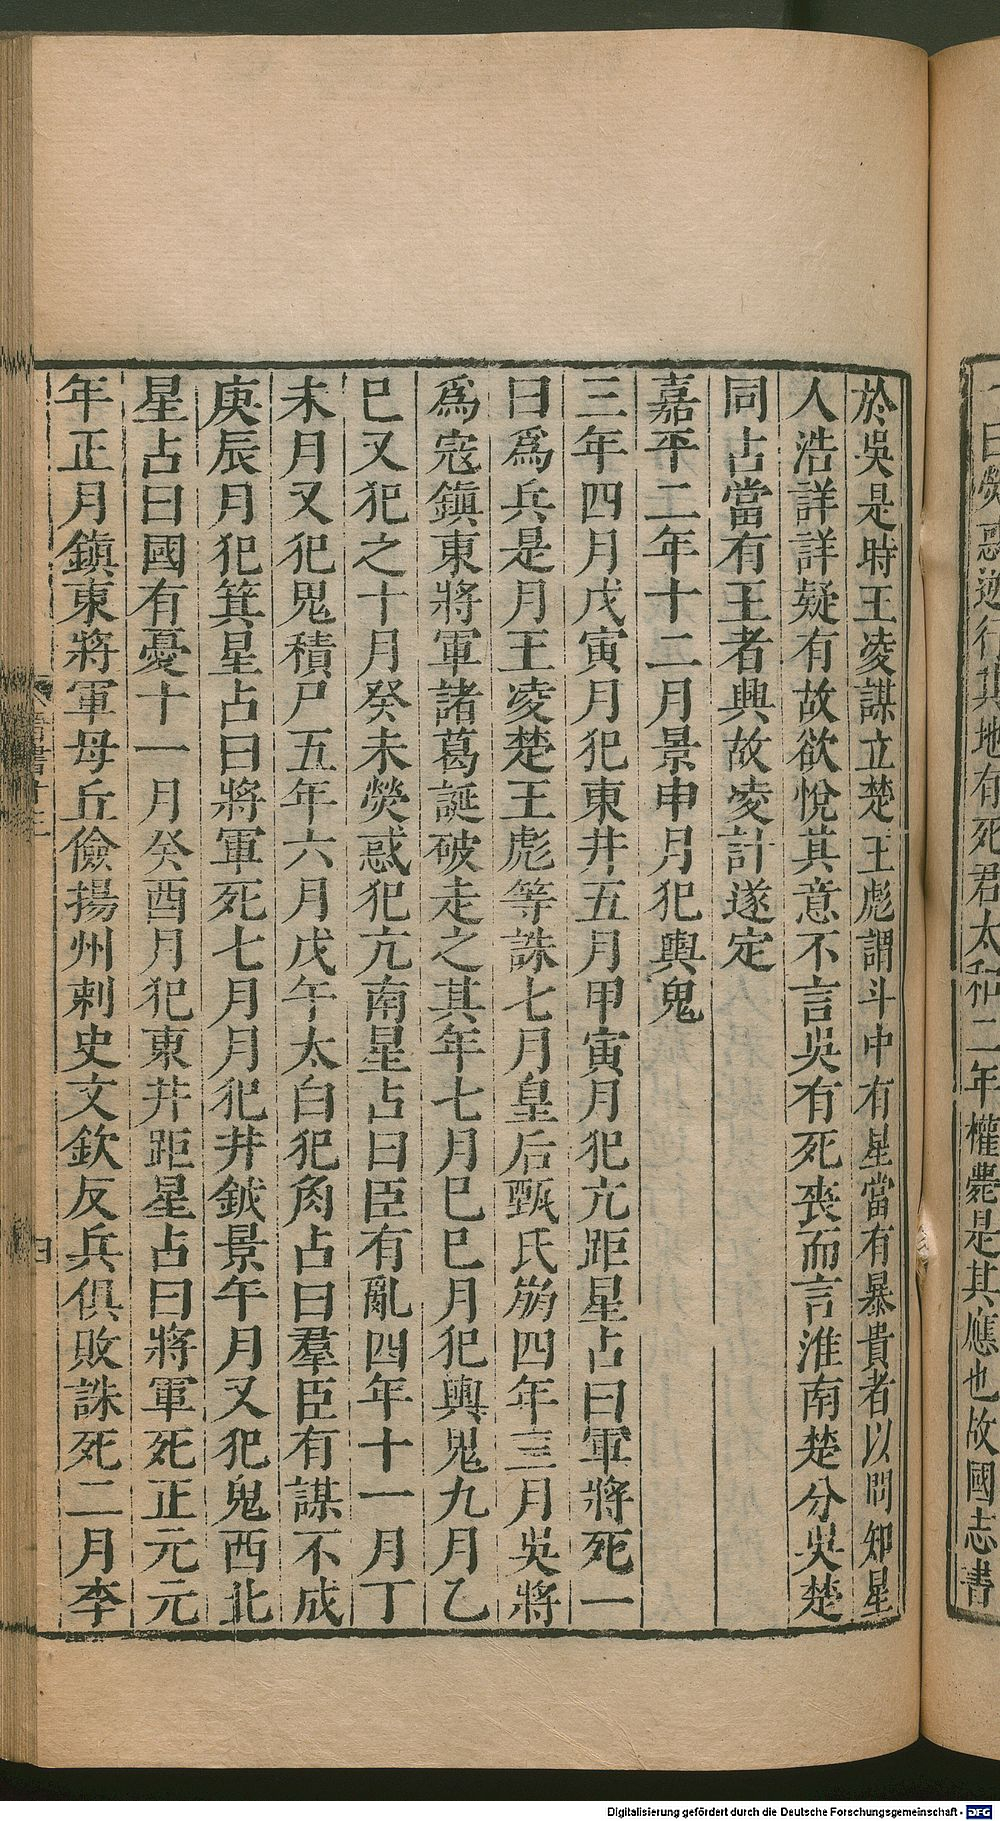 一曰熒惑逆行其地有死君太和二年權薨是其應也故國志書
於吳是時王凌謀立楚王彪謂斗中有星當有暴貴者以問知星
人浩詳詳疑有故欲悅其意不言吳有死喪而言淮南楚分吳楚
同占當有王者興故凌計遂定
嘉平二年十二月景申月犯輿鬼
三年四月戊寅月犯東井五月甲寅月犯亢距星占曰軍將死一
曰爲兵是月王凌楚王彪等誅七月皇后甄氏崩四年三月吳將
爲寇鎭東將軍諸葛誕破走之其年七月己巳月犯輿鬼九月乙
巳又犯之十月癸未熒惑犯亢南星占曰臣有亂四年十一月丁
未月又犯鬼積尸五年六月戊午太白犯角占曰羣臣有謀不成
庚辰月犯箕星占曰將軍死七月月犯井鉞景午月又犯鬼西北
星占曰國有憂十一月癸酉月犯東井距星占曰將軍死正元元
年正月鎭東將軍母丘儉揚州刺史文欽反兵俱敗誅死二月李
晉書十三
四
Digitalisierung gefördert durch die Deutsche Forschungsgemeinschaft - DFG